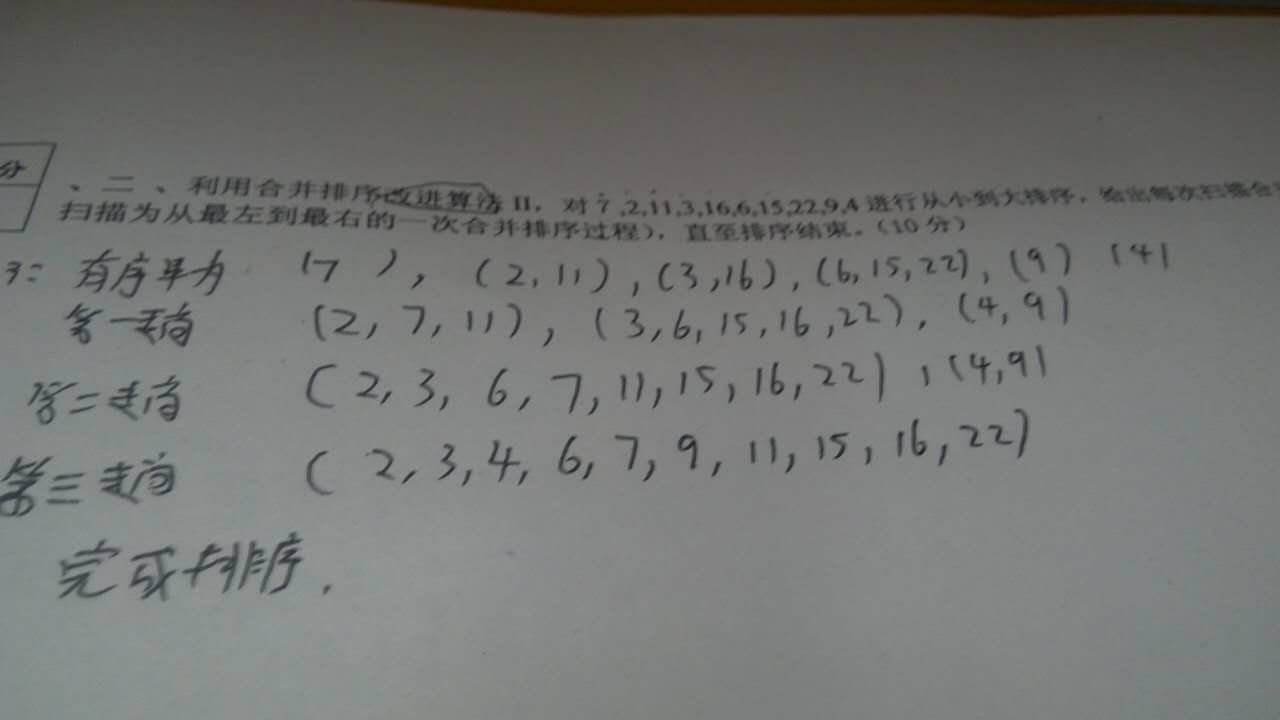 分
、二、利用合并排序改进算法 II，对 7,2,11,3,16,6,15,22,9,4 进行从小到大排序，给出每次扫描合
扫描为从最左到最右的一次合并排序过程)，直至排序结束。（10 分）
有序 (7 ), (2, 11), (3,16), (6,15,22), (9) (4)
第一 (2, 7, 11), (3,6,15,16,22), (4,9)
第二 (2, 3, 6, 7, 11, 15, 16, 22), (4,9)
第三 (2,3,4, 6, 7, 9, 11, 15, 16, 22)
完成排序.